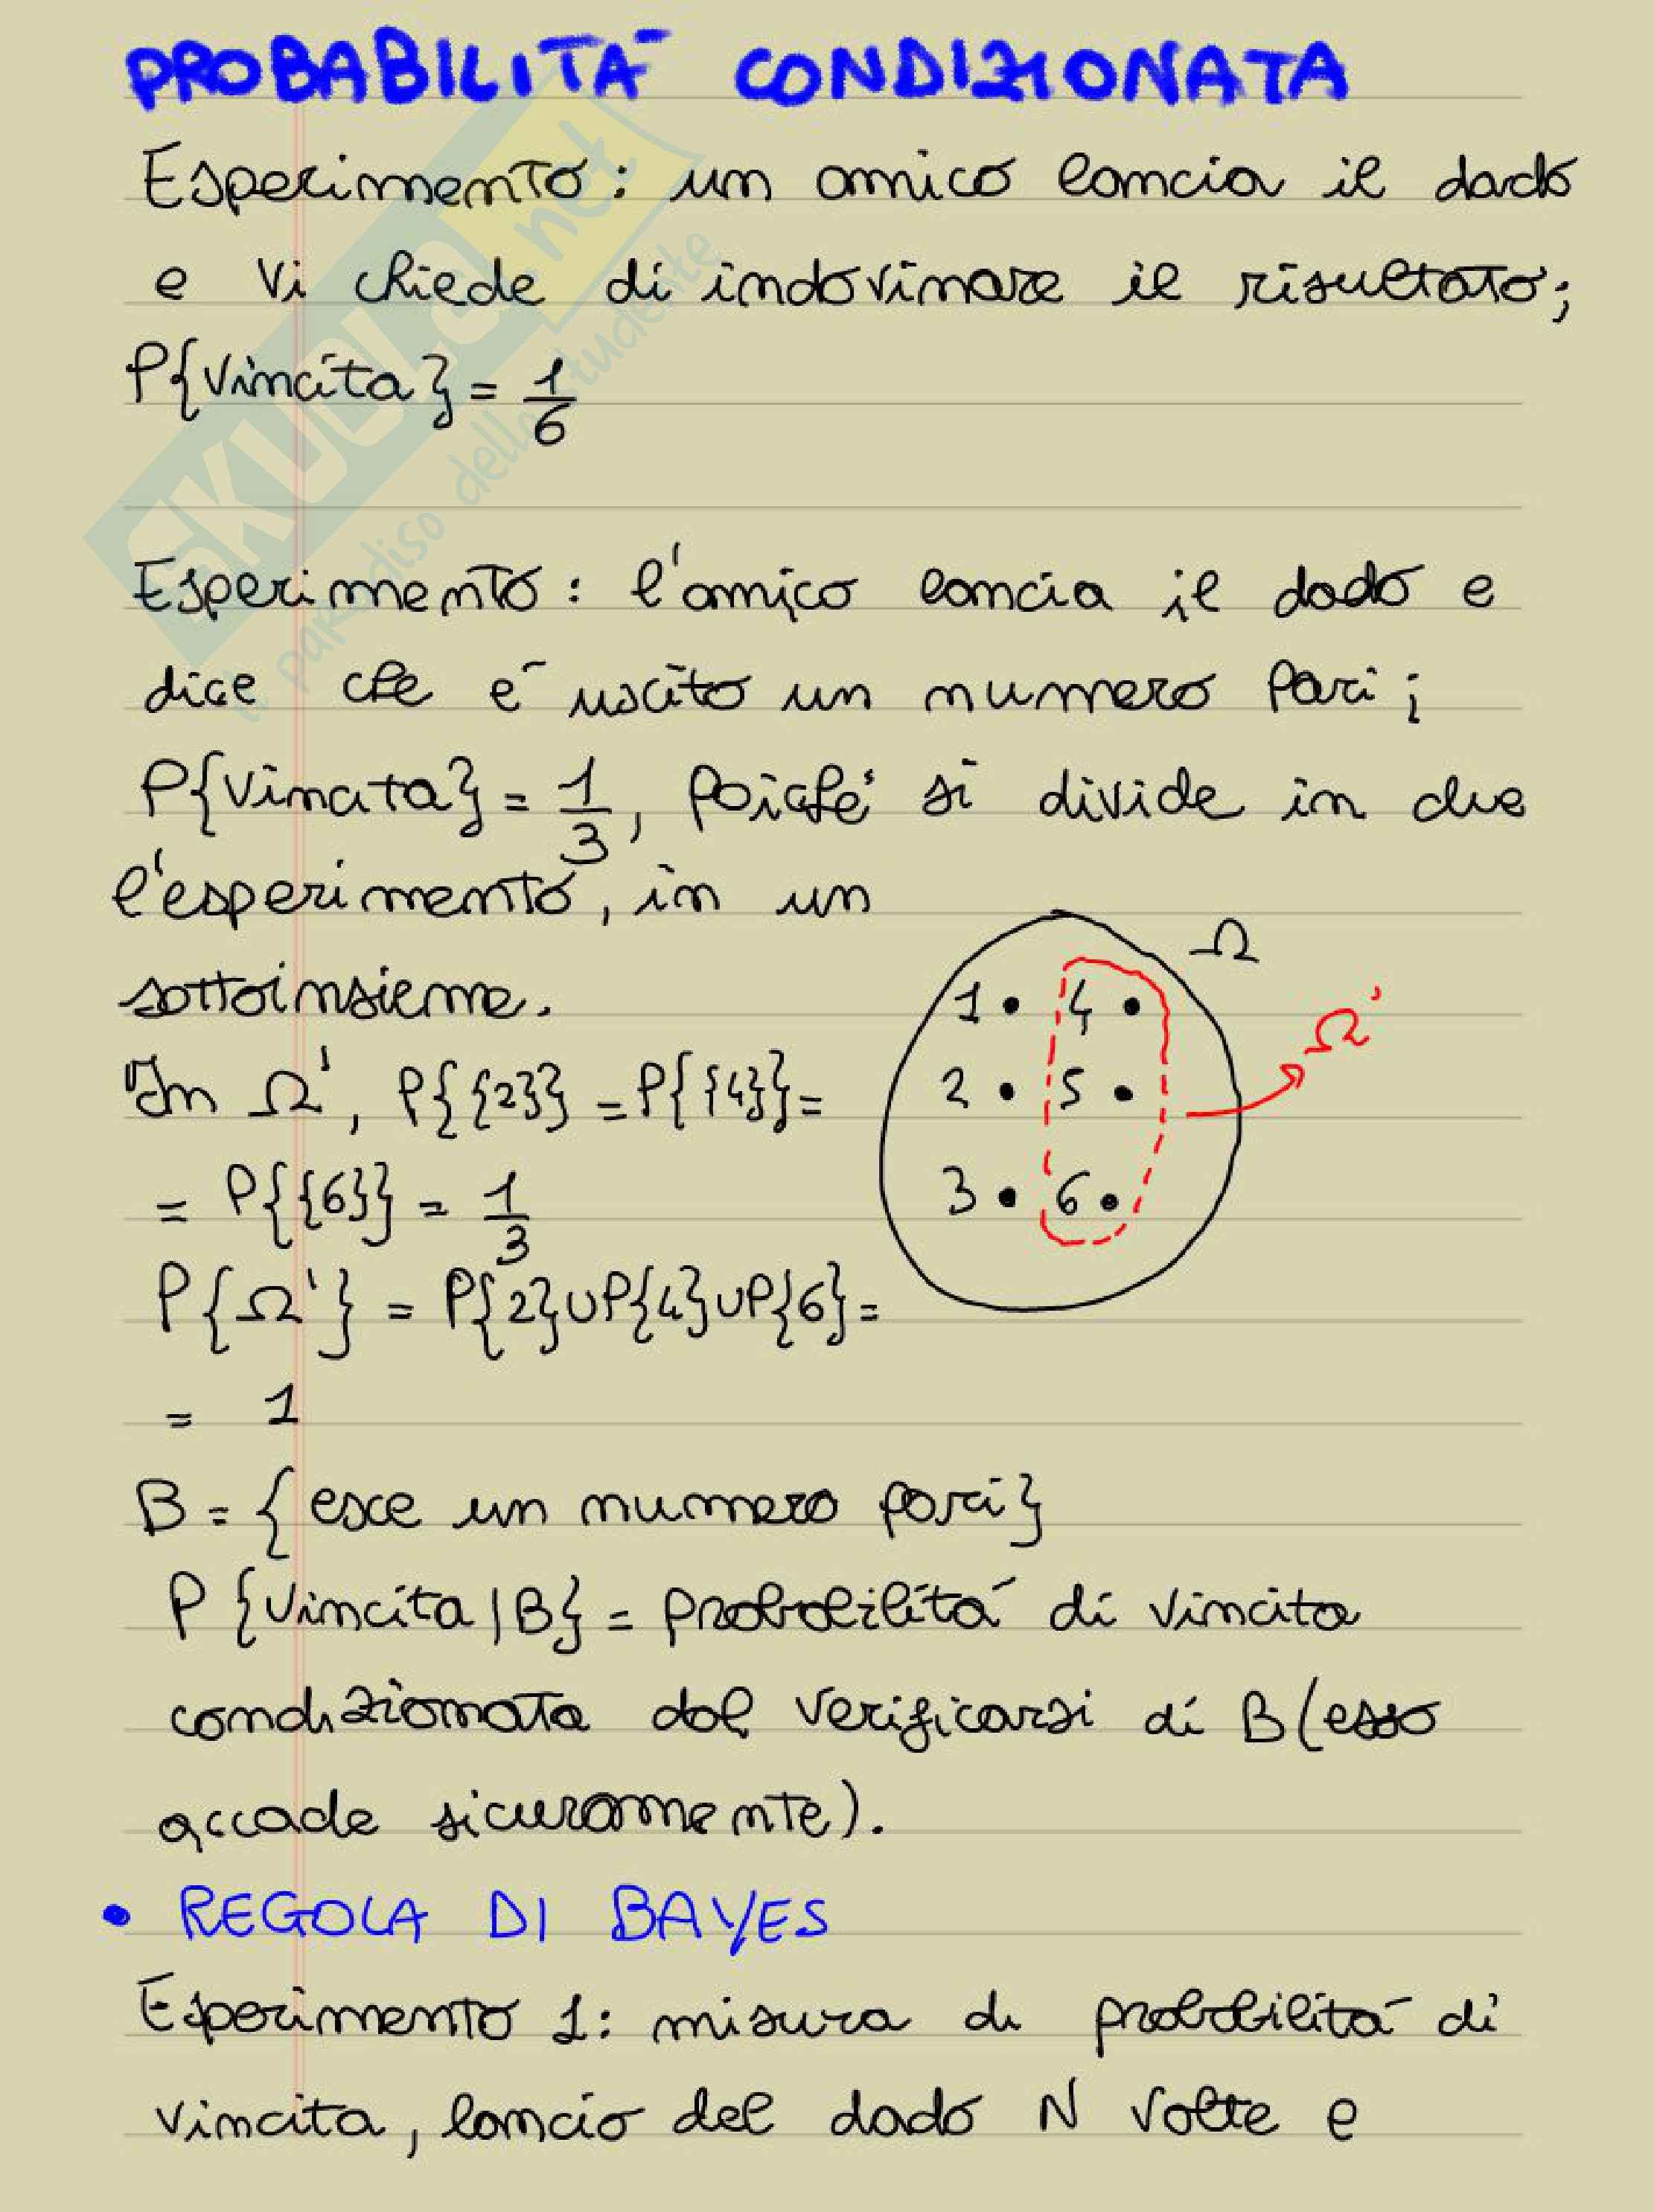 PROBABILITÀ CONDIZIONATA
Esperimento: un amico lancia il dado
e vi chiede di indovinare il risultato;
P{Vincita} = 1/6
Esperimento: l'amico lancia il dado e
dice che è uscito un numero pari;
P{Vincita} = 1/3, poiché si divide in due
l'esperimento, in un
sottoinsieme.
In Ω', P{{2}} = P{{4}} =
= P{{6}} = 1/3
P{Ω'} = P{2}∪P{4}∪P{6} =
= 1
Ω
1 • 4 •
2 • 5 •
3 • 6 •
Ω'
B = {esce un numero pari}
P{Vincita|B} = probabilità di vincita
condizionata dal verificarsi di B (esso
accade sicuramente).
• REGOLA DI BAYES
Esperimento 1: misura di probabilità di
vincita, lancio del dado N volte e
SKUOLA.net
il paradiso dello studente